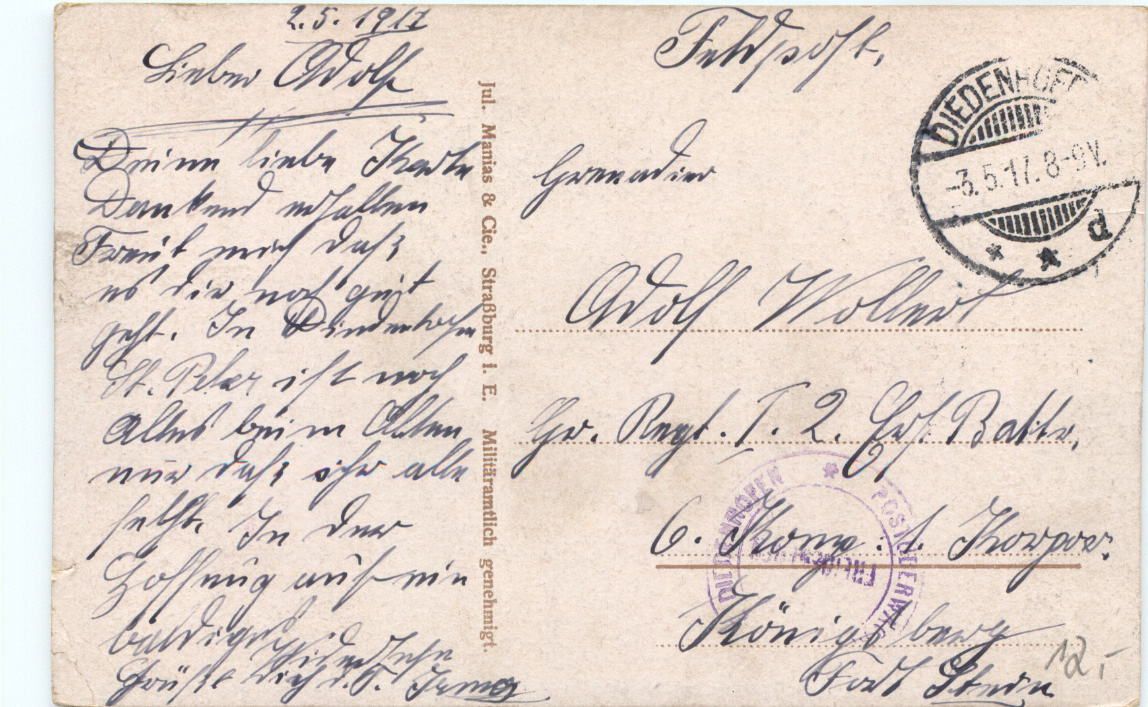 2.5.1917
Lieber Adolf
Deine liebe Karte
Dankend erhalten
Freut mich daß
es dir noch gut
geht. In Diedenhofen
St. Peter ist noch
Alles beim Alten
nur daß ihr alle
fehlt. In der
Hoffnug auf ein
baldiges
Widersehn
Grüßt Dich d. F. Irma
Jul. Manias & Cie., Straßburg i. E. Militäramtlich genehmigt.
Feldpost.
DIEDENHOFE
-3.5.17. 8-9V.
* * d
Grenadier
Adolf Wollert
Gr. Regt. I. 2. Ers. Battr.
6. Komp. 1. Korpor.
Königsberg
Fort Stein
DIEDENHOFEN * POSTÜBERWACH
12.-